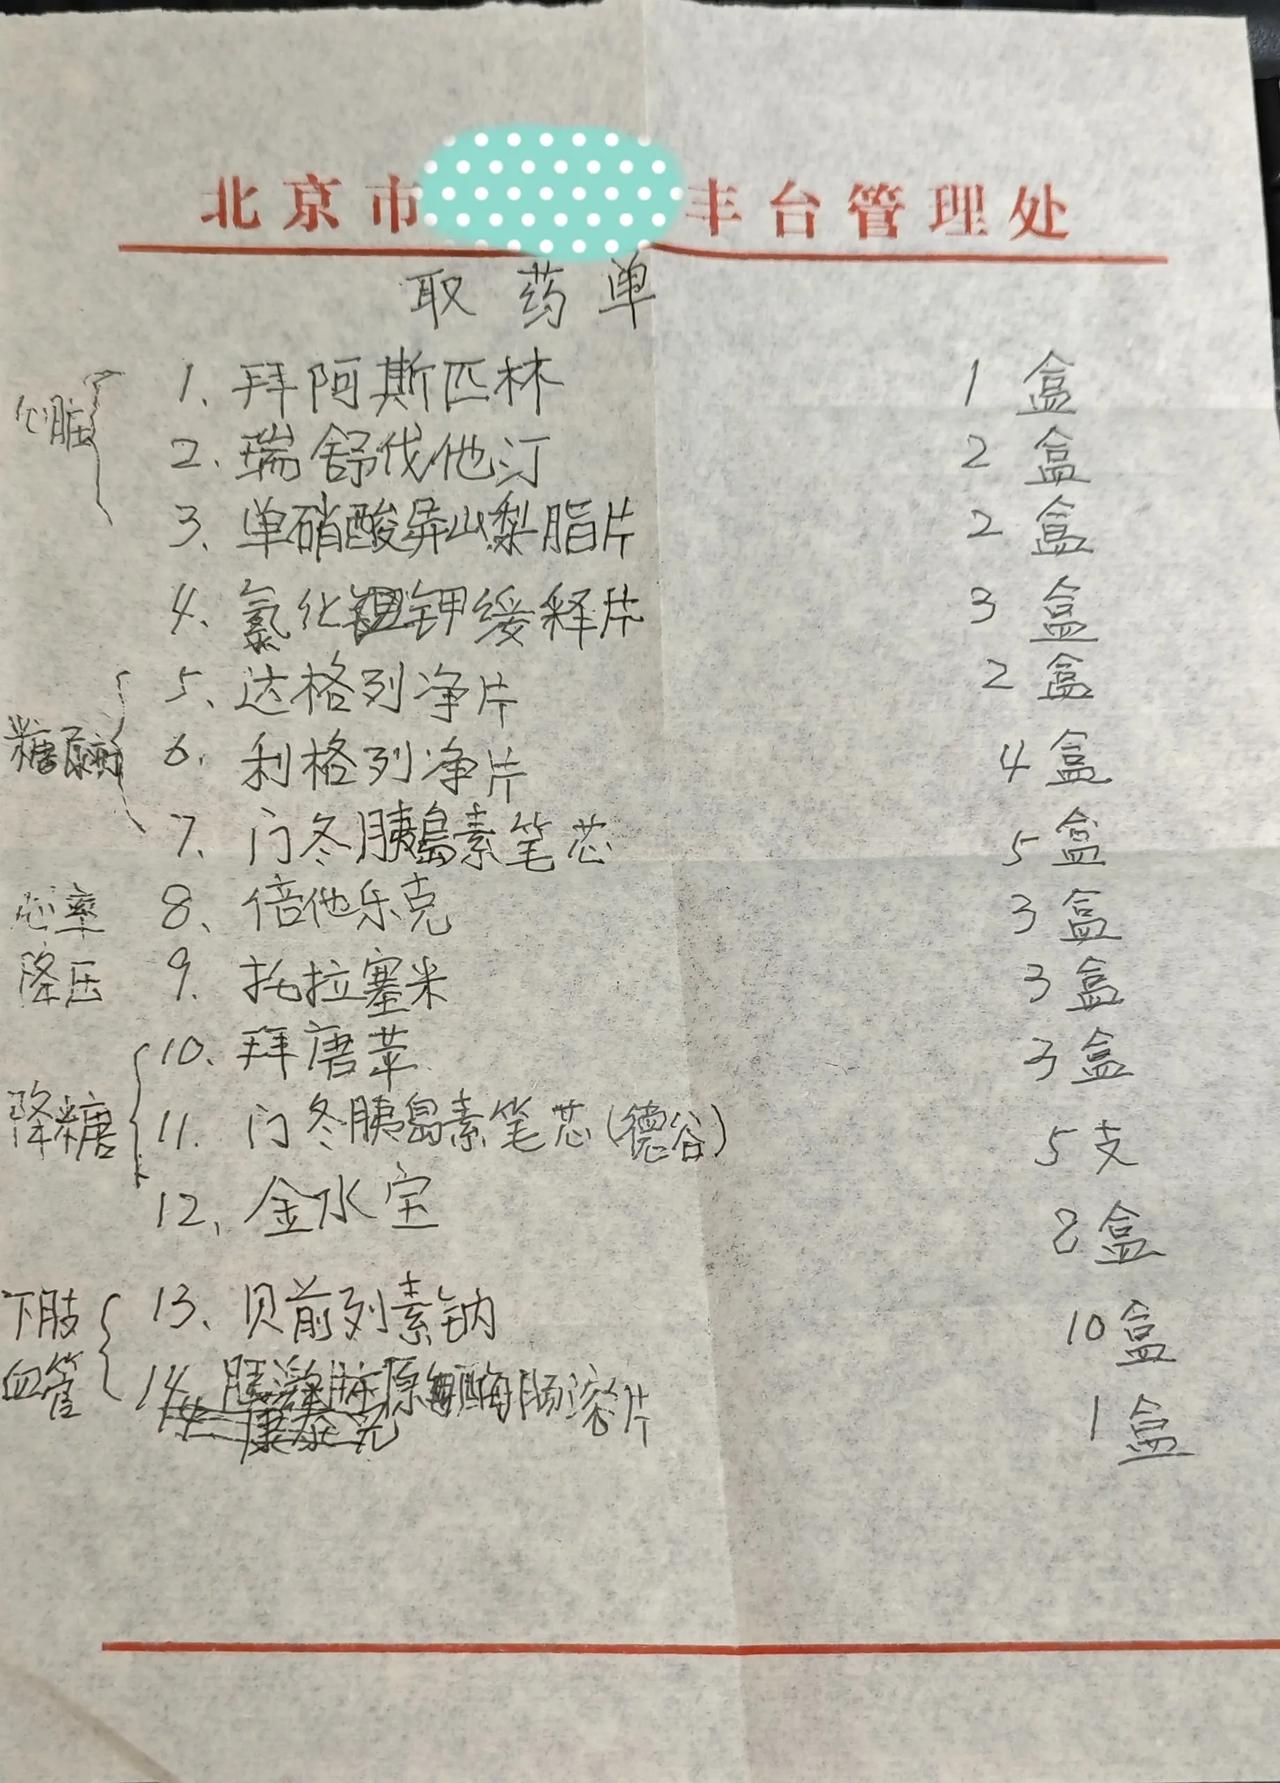 北京市 丰台管理处
取药单
心脏
1、拜阿斯匹林 1盒
2、瑞舒伐他汀 2盒
3、单硝酸异山梨脂片 2盒
4、氯化钾缓释片 3盒
糖尿病
5、达格列净片 2盒
6、利格列净片 4盒
7、门冬胰島素笔芯 5盒
心率 8、倍他乐克 3盒
降压 9、托拉塞米 3盒
降糖
10、拜唐苹 3盒
11、门冬胰島素笔芯(德谷) 5支
12、金水宝 2盒
下肢
血管
13、贝前列素钠 10盒
14、胰激肽原酶肠溶片 1盒